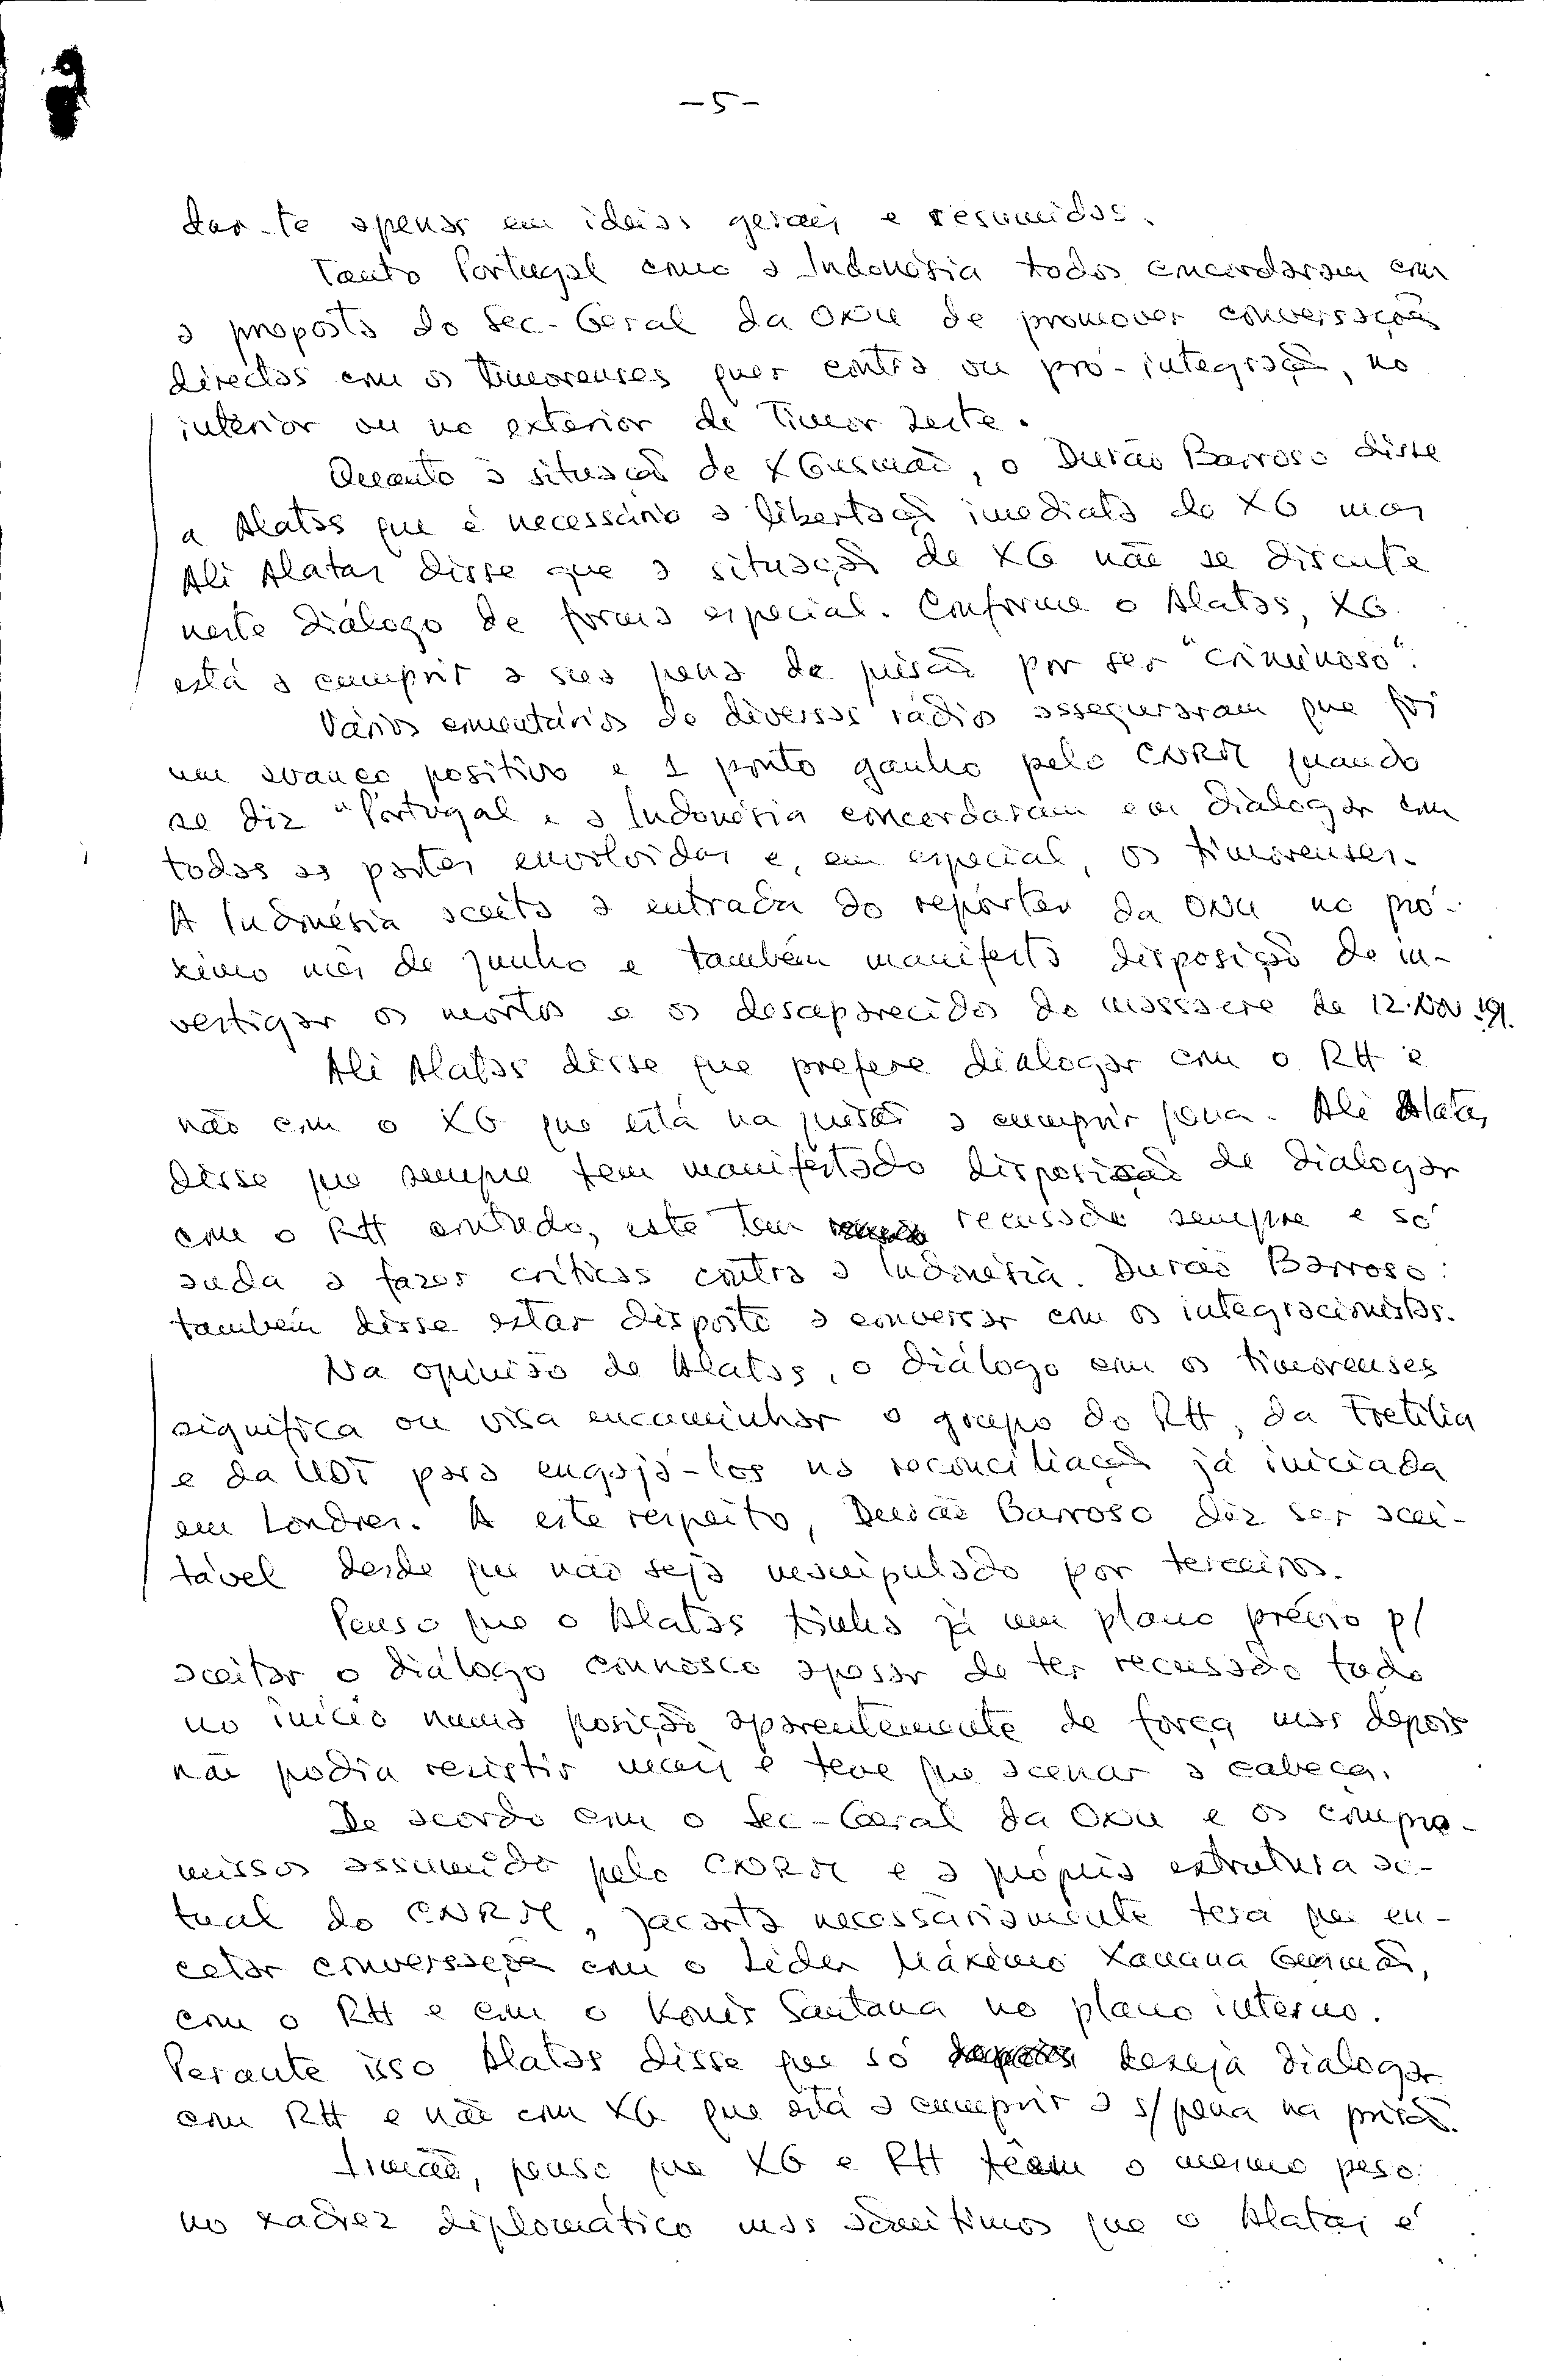 -5-
dar-te apenas em ideias gerais e resumidas.
Tanto Portugal como a Indonésia todos concordaram com
a proposta do Sec-Geral da ONU de promover conversações
directas com os timorenses quer contra ou pró-integração, no
interior ou no exterior de Timor Leste.
Quanto à situação de XGusmão, o Durão Barroso disse
a Alatas que é necessário a libertação imediata do XG mas
Ali Alatas disse que a situação de XG não se discute
neste diálogo de forma especial. Conforme o Alatas, XG
está a cumprir a sua pena de prisão por ser "criminoso".
Vários comentários de diversas rádios asseguraram que foi
um avanço positivo e 1 ponto ganho pelo CNRM quando
se diz "Portugal e a Indonésia concordaram em dialogar com
todas as partes envolvidas e, em especial, os timorenses.
A Indonésia aceita a entrada do repórter da ONU no pró-
ximo mês de Junho e também manifesta disposição de in-
vestigar os mortos e os desaparecidos do massacre de 12.Nov.91.
Ali Alatas disse que prefere dialogar com o RH e
não com o XG que está na prisão a cumprir pena. Ali Alatas
disse que sempre tem manifestado disposição de dialogar
com o RH contudo, este tem recusado sempre e só
anda a fazer críticas contra a Indonésia. Durão Barroso
também disse estar disposto a conversar com os integracionistas.
Na opinião de Alatas, o diálogo com os timorenses
significa ou visa encaminhar o grupo do RH, da Fretilin
e da UDT para engajá-los na reconciliação já iniciada
em Londres. A este respeito, Durão Barroso diz ser acei-
tável desde que não seja manipulado por terceiros.
Penso que o Alatas tinha já um plano prévio p/
aceitar o diálogo connosco apesar de ter recusado tudo
no início numa posição aparentemente de força mas depois
não podia resistir mais e teve que acenar a cabeça.
De acordo com o Sec-Geral da ONU e os compro-
missos assumido pelo CNRM e a própria estrutura ac-
tual do CNRM, Jacarta necessáriamente terá que en-
cetar conversação com o Líder Máximo Xanana Gusmão,
com o RH e com o Konis Santana no plano interno.
Perante isso Alatas disse que só deseja dialogar
com RH e não com XG que está a cumprir a s/pena na prisão.
Irmão, penso que XG e RH têem o mesmo peso
no xadrez diplomático mas admitimos que o Alatas é